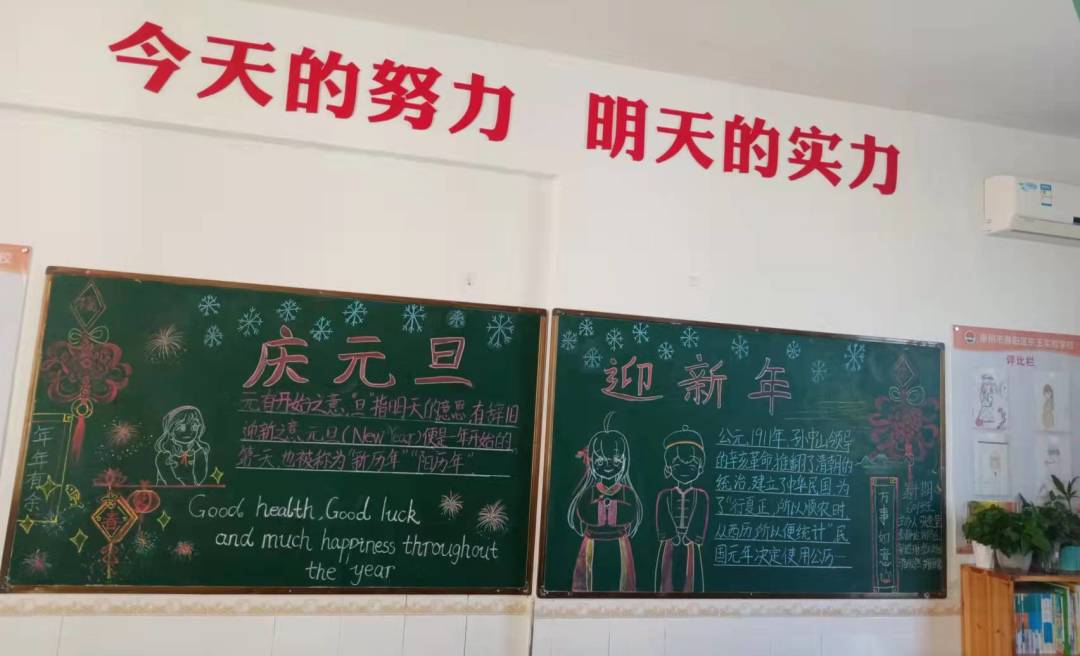 今天的努力 明天的实力
庆元旦
元有开始之意,"旦"指明天的意思,有辞旧
迎新之意,元旦(New Year)便是一年开始的
第一天,也被称为"新历年""阳历年"
Good health, Good luck
and much happiness throughout
the year
福
年年有余
春
迎新年
公元,1911年,孙中山领导
的辛亥革命,推翻了清朝的
统治,建立了中华民国,为
了"行夏正,所以顺农时,
从西历,所以便统计",民
国元年决定使用公历
万事如意
评比栏